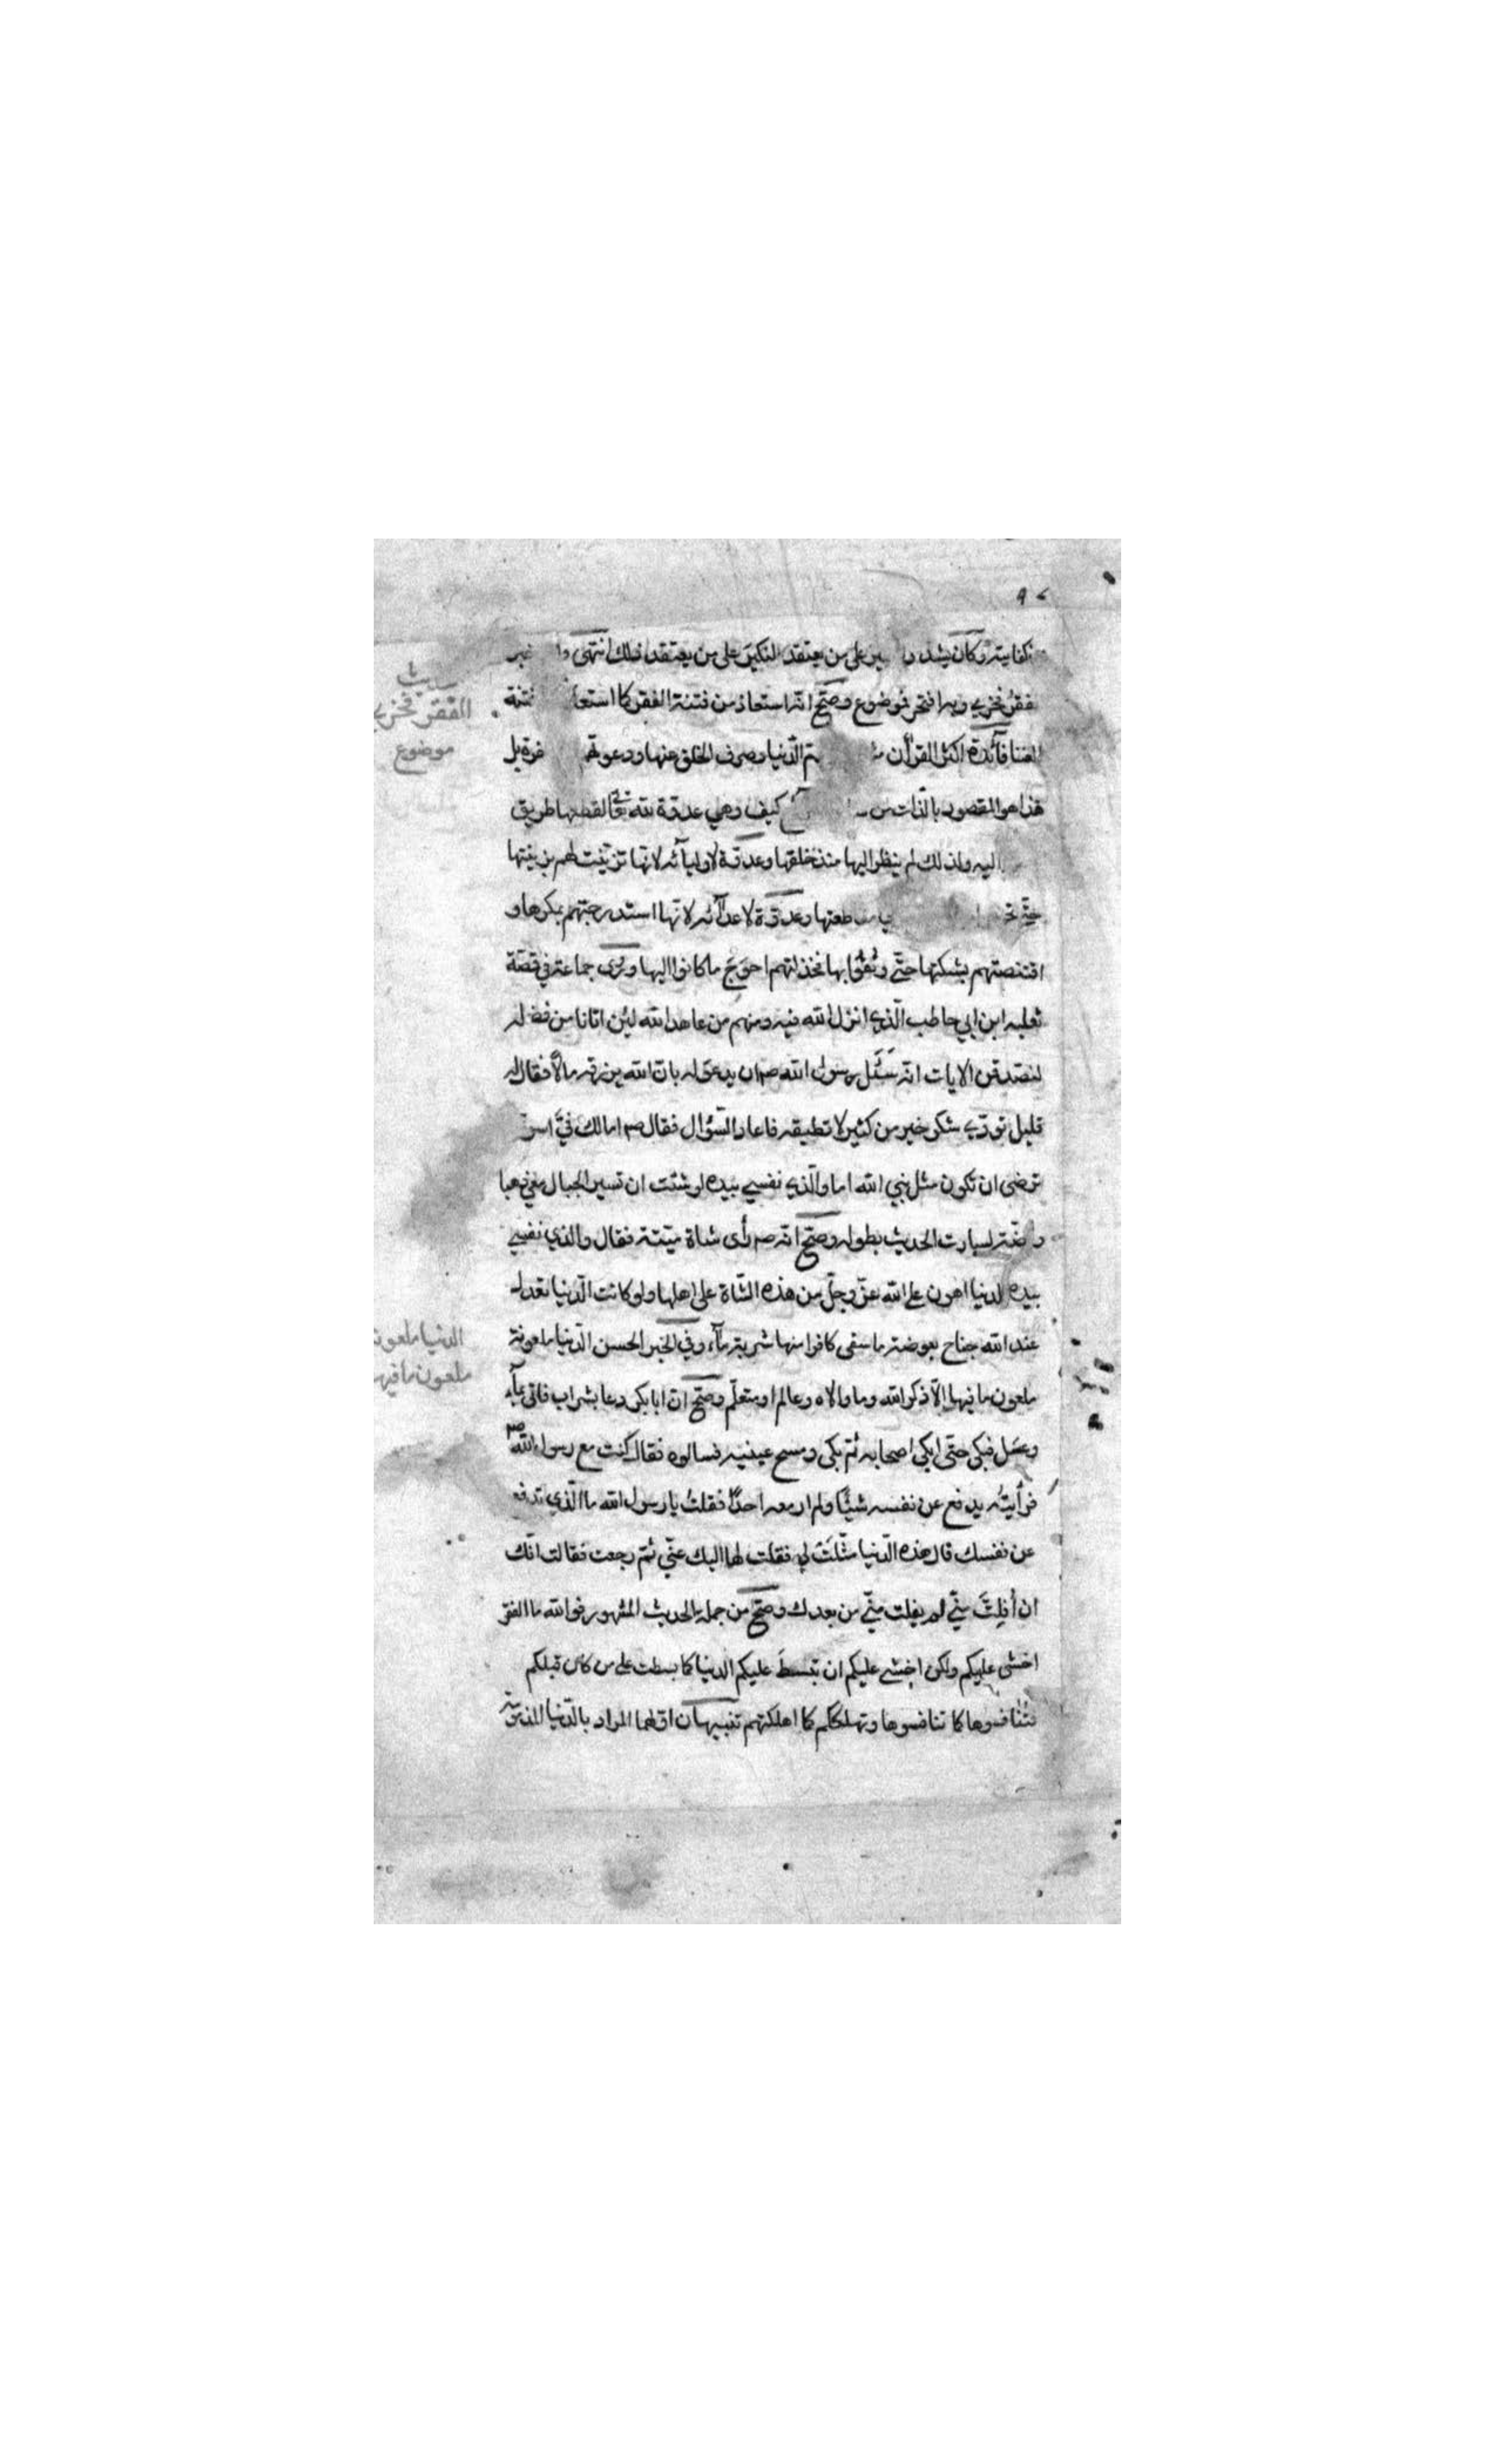 ٩٧
كفايته وكان يشدد على من يعتقد النكير على من يعتقد ذلك انتهى وا خبر
الفقر فخري وبه افتخر فموضوع وصحّ انه استعاذ من فتنة الفقر كما استعا فتنة
الغنا فائدة اكثر القرآن الدّنيا وصرف الخلق عنها ودعوتهم بل
هذا هو المقصود بالذّات من كيف وهي عدوّة لله تعالى لقطعها طريق
اليه ولذلك لم ينظر اليها منذ خلقها وعدوّة لاوليائه لانّها تزيّنت لهم بزينتها
حتّى وعدوّة لاعدآئه لانّها استدرجتهم بمكرها و
اقتنصتهم بشبكتها حتّى وثقوا بها فخذلتهم احوج ما كانوا اليها وروى جماعة في قصّة
ثعلبه ابن ابي حاطب الّذي انزل الله فيه ومنهم من عاهد الله لئن اتانا من فضله
لنصّدقنّ الايات انه سئل رسول الله صم ان يدعو له بان الله يرزقه مالا فقال له
قليل تودّي شكره خير من كثير لا تطيقه فاعاد السّؤال فقال صم اما لك فيّ اسوة
ترضى ان تكون مثل نبي الله اما والّذي نفسي بيده لو شئت ان تسير الجبال معي ذهبا
وفضّة لسارت الحديث بطوله وصحّ انه صم رأى شاة ميّتة فقال والذي نفسي
بيده الدنيا اهون على الله عزّ وجلّ من هذه الشّاة على اهلها ولو كانت الدّنيا تعدل
عند الله جناح بعوضة ما سقى كافرا منها شربة مآء وفي الخبر الحسن الدّنيا ملعونة
ملعون ما فيها الّا ذكر الله وما والاه وعالم او متعلّم وصحّ انّ ابا بكر دعا بشراب فاتى بمآء
وعسل فبكى حتى ابكى اصحابه ثمّ بكى ومسح عينيه فسالوه فقال كنت مع رسول الله صم
فرأيته يدفع عن نفسه شيئا ولم ار معه احدًا فقلت يا رسول الله ما الّذي تدفع
عن نفسك قال هذه الدّنيا مثّلت لي فقلت لها اليك عنّي ثمّ رجعت فقالت انّك
ان أفلتّ منّي لم يفلت منّي من بعدك وصحّ من جملة الحديث المشهور فوالله ما الفقر
اخشى عليكم ولكن اخشى عليكم ان تبسط عليكم الدنيا كما بسطت على من كان قبلكم
فتنافسوها كما تنافسوها وتهلككم كما اهلكتهم تنبيهان اوّلهما المراد بالدّنيا المذمومة
الفقر فخري
موضوع
الدنيا ملعونة
ملعون ما فيها